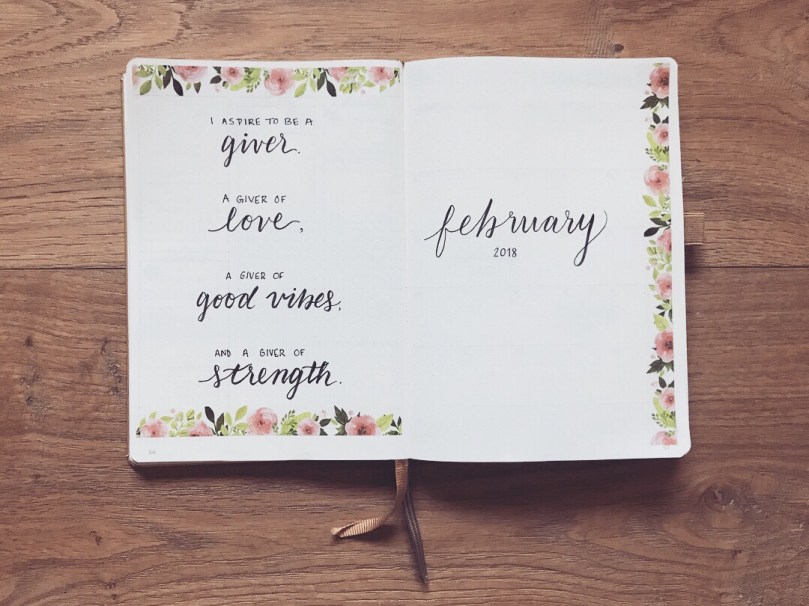 I ASPIRE TO BE A
giver.
A GIVER OF
love,
A GIVER OF
good vibes,
AND A GIVER OF
strength.
february
2018